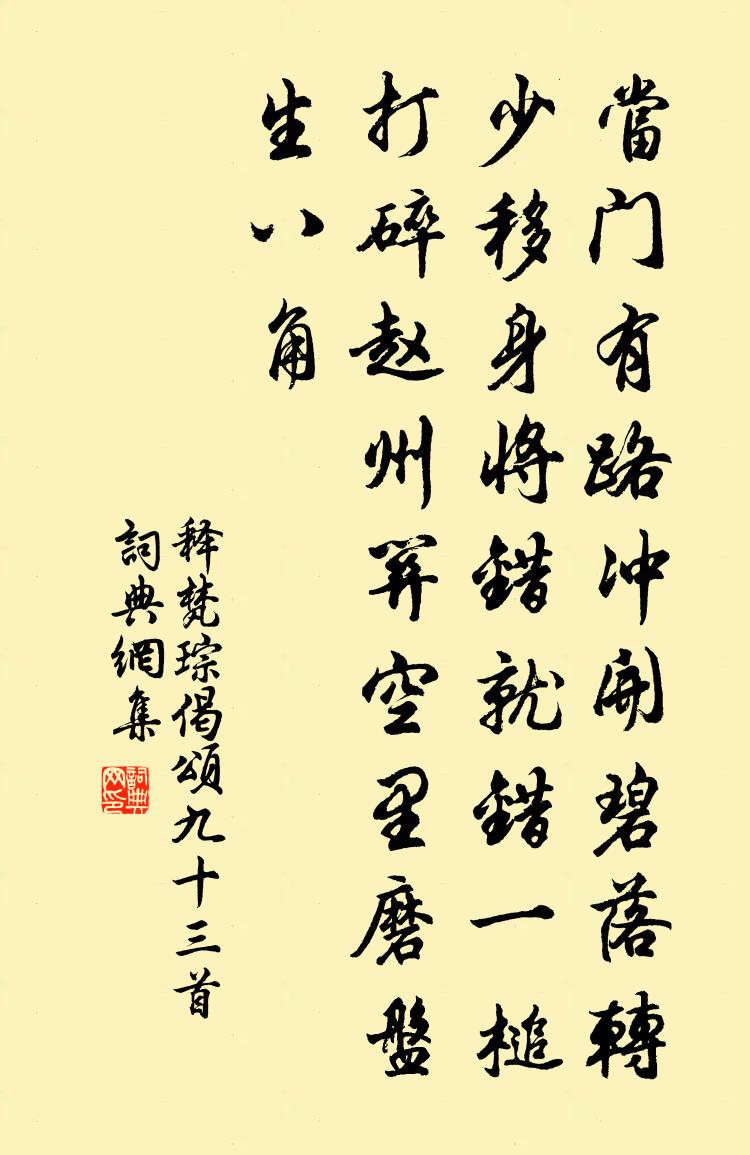 當门有路冲開碧落轉
少移身將錯就錯一槌
打碎赵州关空里磨盤
生八角
释梵琮偈頌九十三首
詞典網集
詞典网印